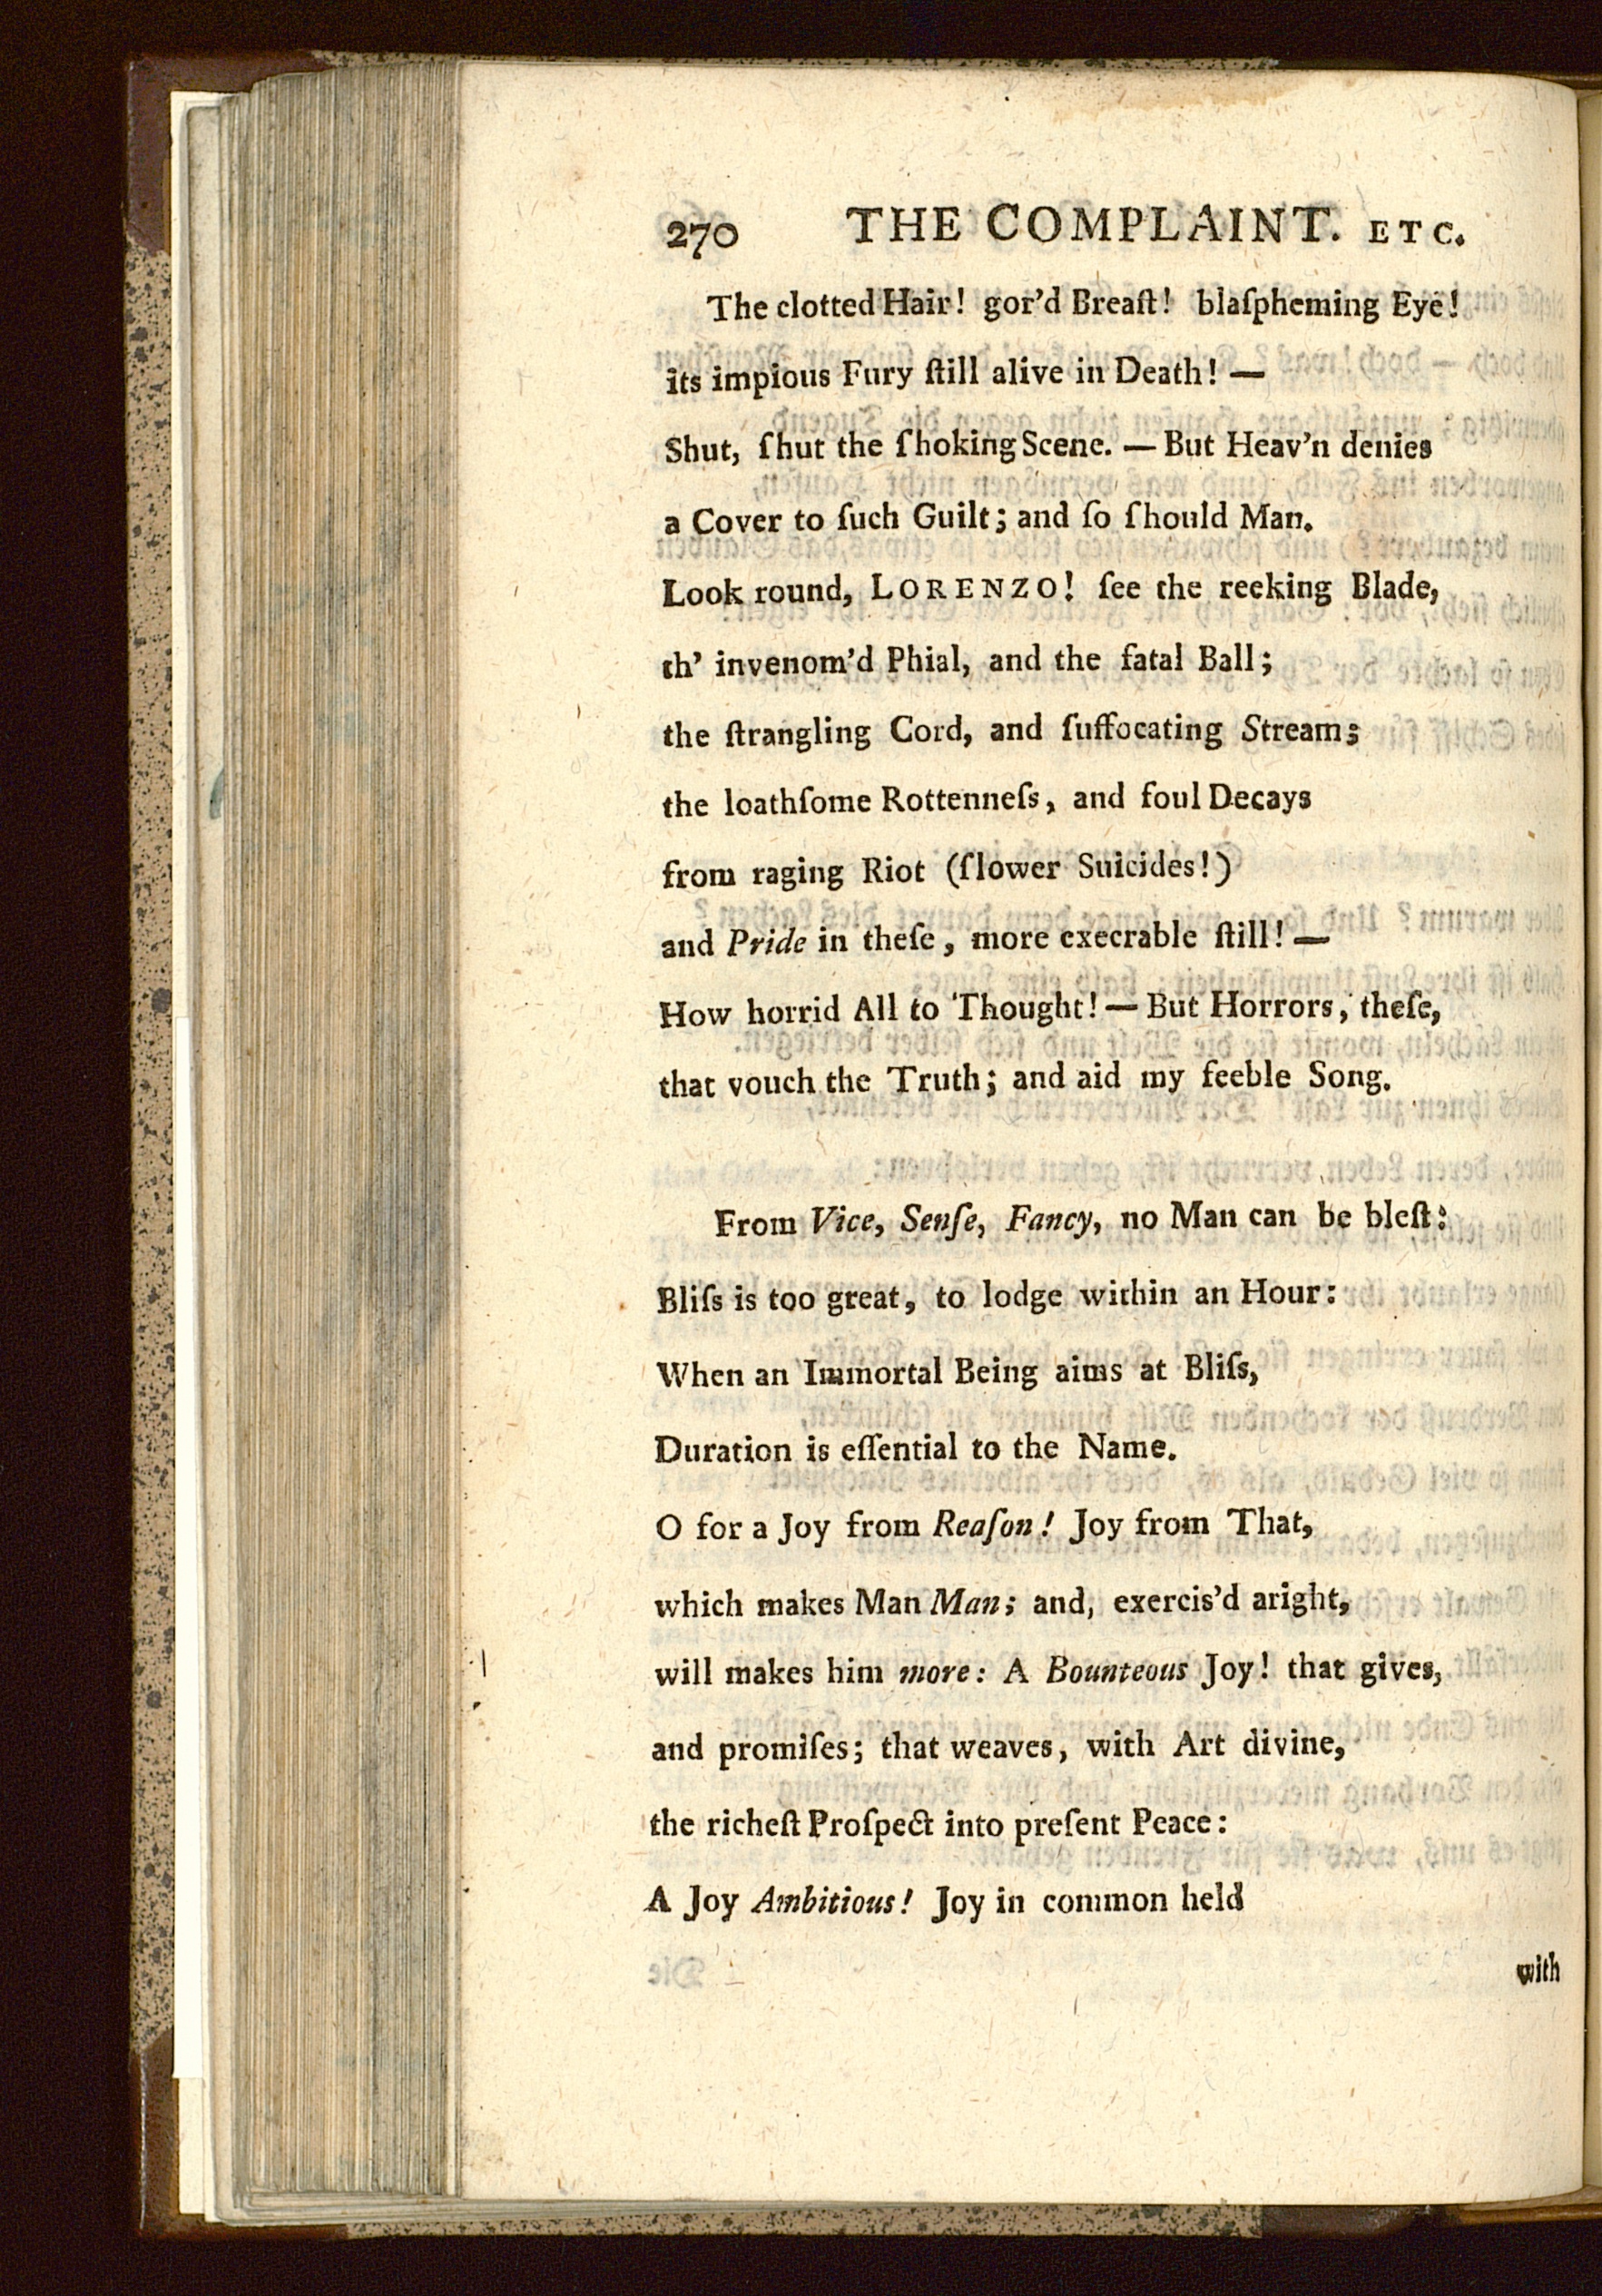 270 THE COMPLAINT. ETC.
The clotted Hair! gor'd Breaſt! blaſpheming Eye!
its impious Fury ſtill alive in Death! —
Shut, ſhut the ſhoking Scene. — But Heav'n denies
a Cover to ſuch Guilt; and ſo ſhould Man.
Look round, LORENZO! ſee the reeking Blade,
th' invenom'd Phial, and the fatal Ball;
the ſtrangling Cord, and ſuffocating Stream;
the loathſome Rottenneſs, and foul Decays
from raging Riot (ſlower Suicides!)
and Pride in theſe, more execrable ſtill! —
How horrid All to Thought! — But Horrors, theſe,
that vouch the Truth; and aid my feeble Song.
From Vice, Senſe, Fancy, no Man can be bleſt:
Bliſs is too great, to lodge within an Hour:
When an Immortal Being aims at Bliſs,
Duration is eſſential to the Name.
O for a Joy from Reaſon! Joy from That,
which makes Man Man; and, exercis'd aright,
will makes him more: A Bounteous Joy! that gives,
and promiſes; that weaves, with Art divine,
the richeſt Proſpect into preſent Peace:
A Joy Ambitious! Joy in common held
with